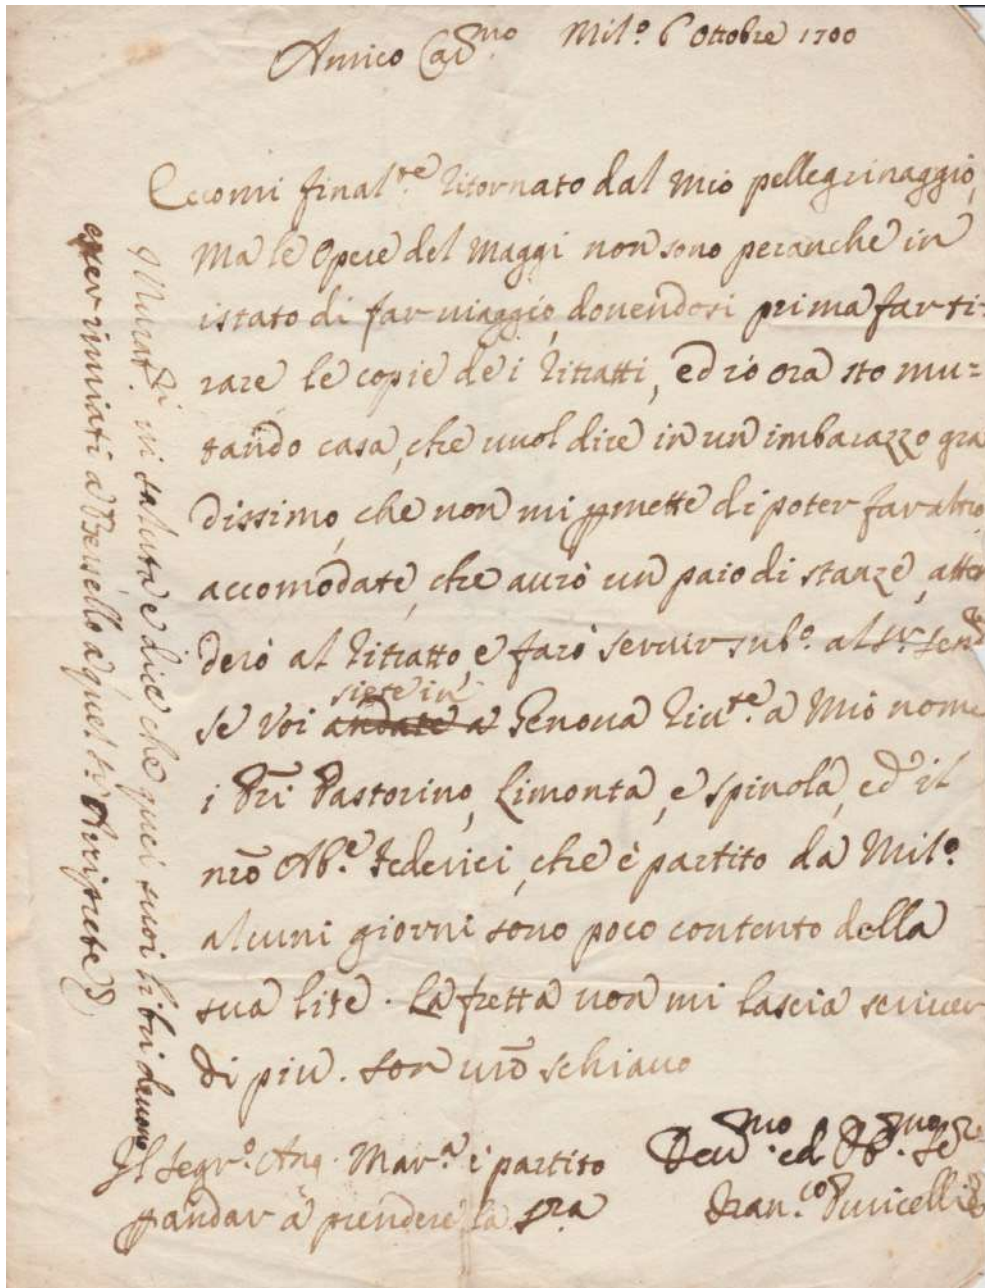 Amico Car.mo Mil.o 6 Ottobre 1700
Eccomi final.te ritornato dal mio pellegrinaggio,
Ma le Opere del Maggi non sono peranche in
istato di far viaggio, dovendosi prima far ti-
rare le copie de i ritratti, ed io ora sto mu=
tando casa, che vuol dire in un imbarazzo gra
dissimo, che non mi pmette di poter far altro,
accomodate, che aurò un paio di stanze, atten
derò al ritratto e farò servir sub.o al Sr.
se voi andate a siete in Genova riv.te a mio nome
i Pri Pastorino, Limonta, e Spinola, ed il
nro Ab.e Federici, che è partito da Mil.o
alcuni giorni sono poco contento della
sua lite. La fretta non mi lascia scriver
di più. son vro schiavo
Dev.mo ed Ob.mo Se.re
Fran.co Puricelli
Il Segr.o Ang. Mar.a è partito
p andar à prendere la Sra
Il Murat.ri vi saluta e dice che quei suoi libri devono
esser inviati a Bersello a quel Sr Arciprete